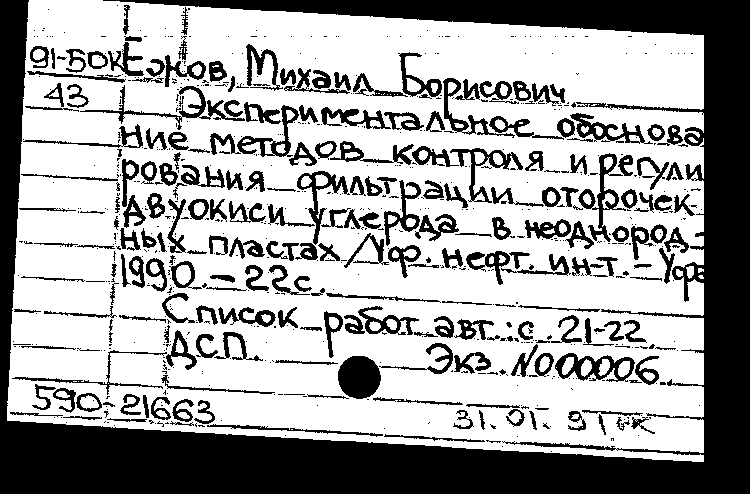 91-50К Ежов, Михаил Борисович.
43 Экспериментальное обоснова
ние методов контроля и регули
рования фильтрации оторочек
двуокиси углерода в неоднород-
ных пластах /Уф. нефт. ин-т. - Уфа
1990. - 22с.
Список работ авт.: с. 21-22.
ДСП. Экз. N000006.
590-21663
31.01.91